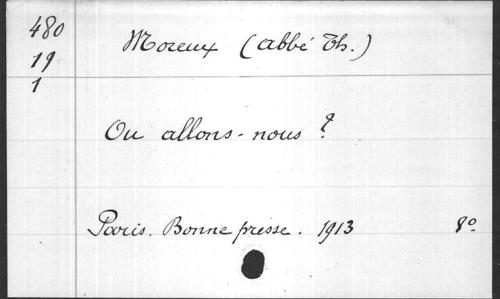 480
19
1
Moreux (abbé Th.)
Ou allons-nous ?
Paris. Bonne presse. 1913 8°